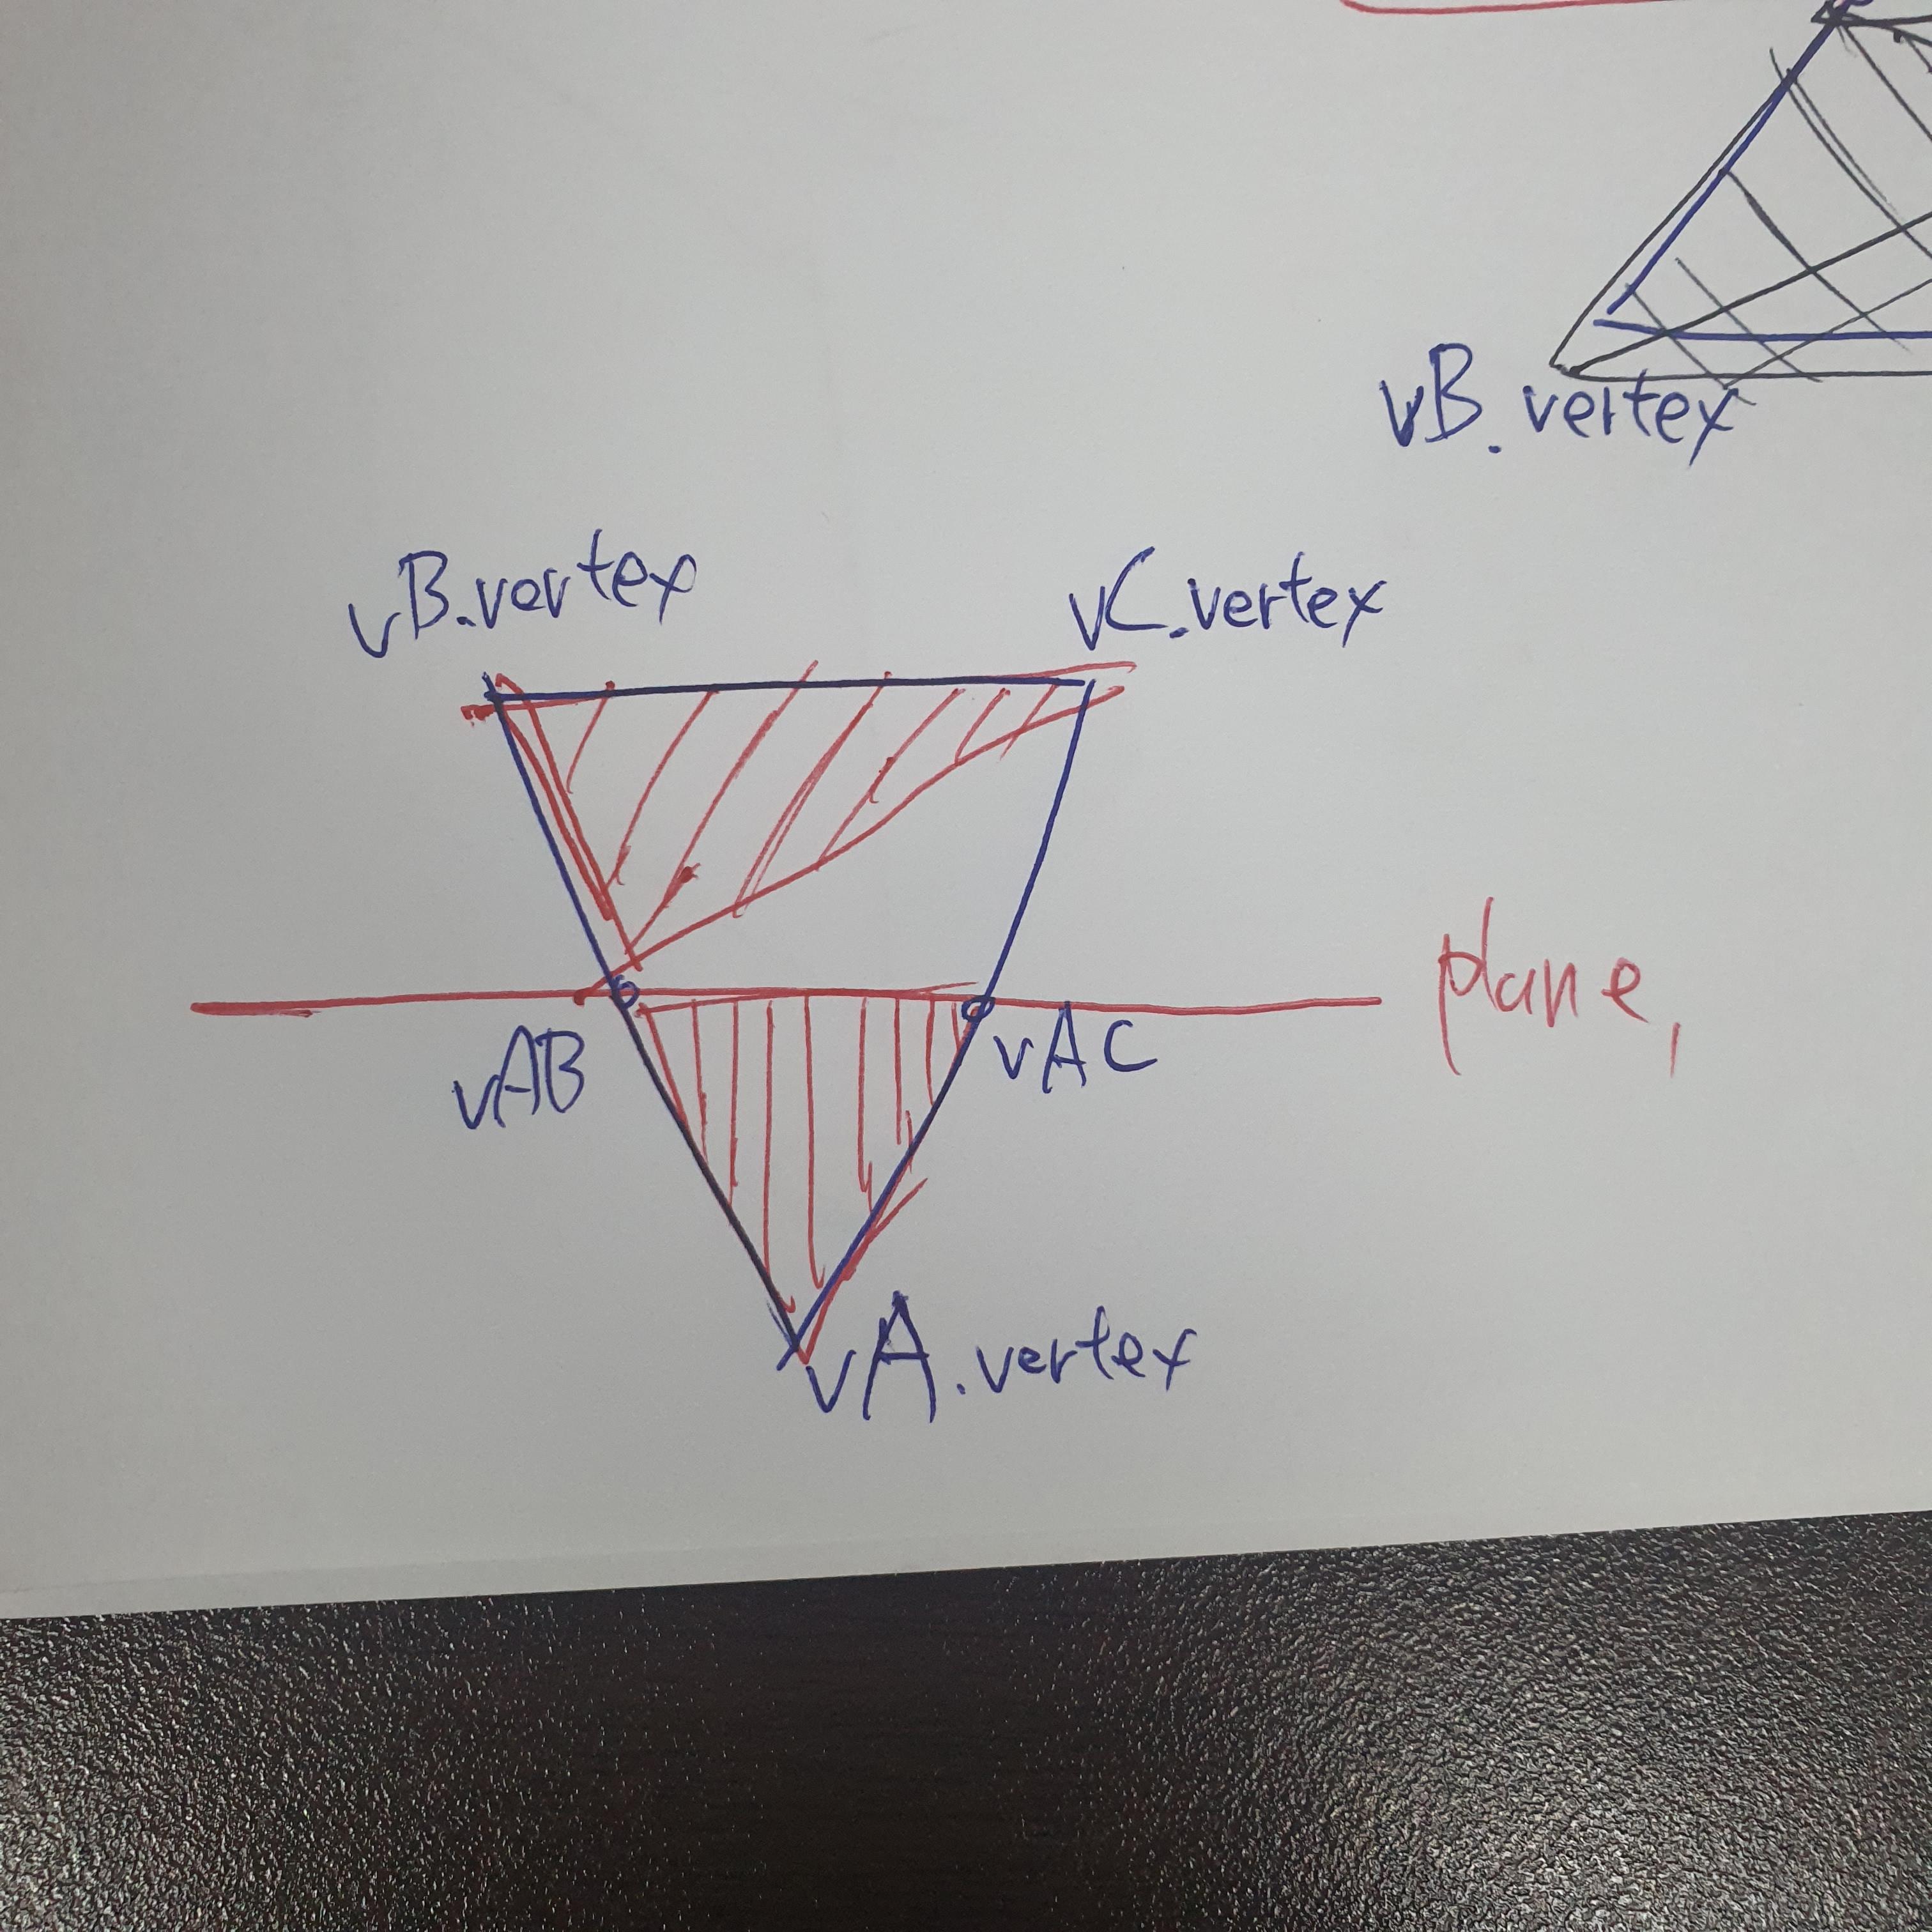 vB.vertex
vB.vertex
vC.vertex
plane,
vAB
vAC
vA.vertex